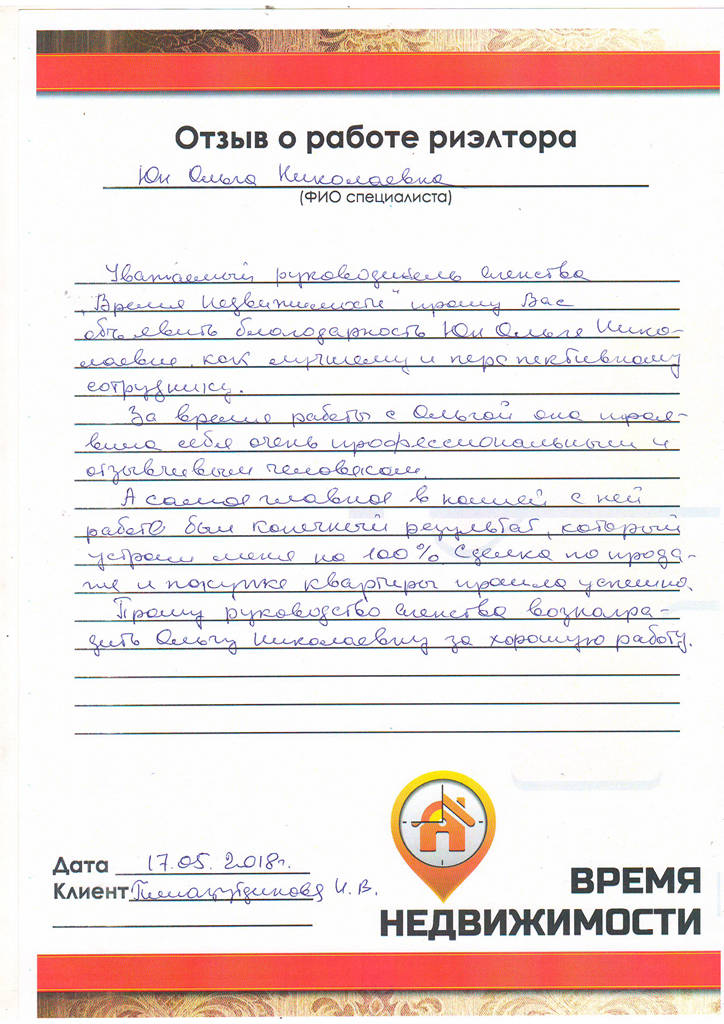 Отзыв о работе риэлтора
Юн Ольга Николаевна
(ФИО специалиста)
Уважаемый руководитель агенства
„Время Недвижимости" прошу Вас
объявить благодарность Юн Ольге Нико-
лаевне, как лучшему и перспективному
сотруднику.
За время работы с Ольгой она проя-
вила себя очень профессиональным и
отзывчивым человеком.
А самое главное в нашей с ней
работе был конечный результат, который
устроил меня на 100%. Сделка по прода-
же и покупке квартиры прошла успешно.
Прошу руководство агенства вознагра-
дить Ольгу Николаевну за хорошую работу.
Дата 17.05.2018г.
Клиент И.В.
ВРЕМЯ
НЕДВИЖИМОСТИ